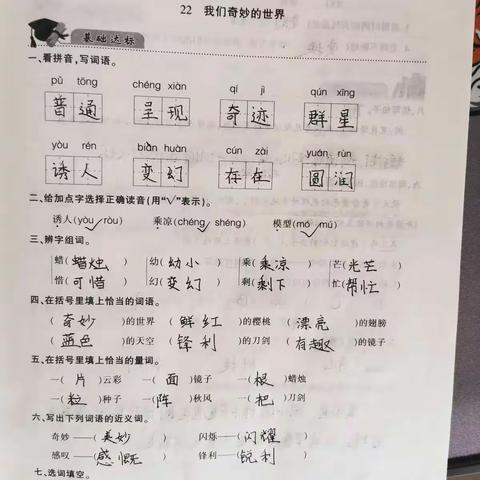 22 我们奇妙的世界
基础达标
一、看拼音,写词语。
pǔ tōng chéng xiàn qí jì qún xīng
普通 呈现 奇迹 群星
yòu rén biàn huàn cún zài yuán rùn
诱人 变幻 存在 圆润
二、给加点字选择正确读音(用“√”表示)。
诱人(yòu√ ròu) 乘凉(chéng√ shéng) 模型(mó√ mú)
三、辨字组词。
蜡(蜡烛) 幼(幼小) 乘(乘凉) 芒(光芒)
惜(可惜) 幻(变幻) 剩(剩下) 忙(帮忙)
四、在括号里填上恰当的词语。
(奇妙)的世界 (鲜红)的樱桃 (漂亮)的翅膀
(蓝色)的天空 (锋利)的刀剑 (有趣)的镜子
五、在括号里填上恰当的量词。
一(片)云彩 一(面)镜子 一(根)蜡烛
一(粒)种子 一(阵)秋风 一(把)刀剑
六、写出下列词语的近义词。
奇妙——(美妙) 闪烁——(闪耀)
感叹——(感慨) 锋利——(锐利)
七、选词填空。